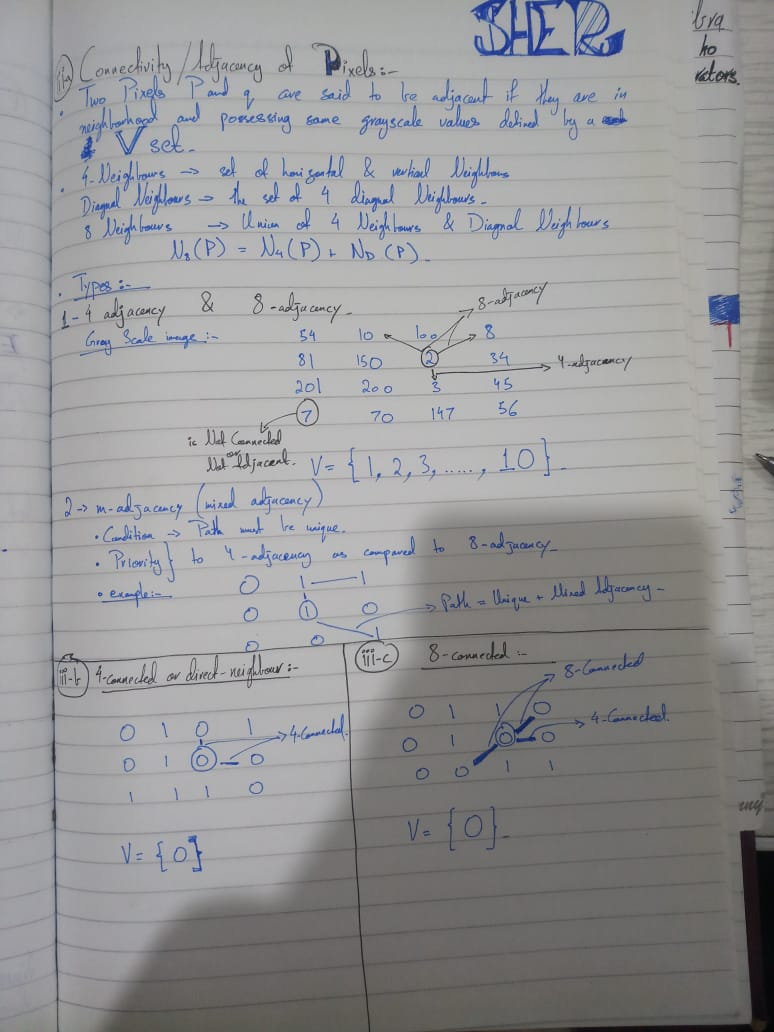 SHER
iii-a Connectivity/Adjacency of Pixels:-
• Two Pixels P and q are said to be adjacent if they are in
neighborhood and possessing same grayscale values defined by a
V set.
• 4-Neighbours → set of horizontal & vertical Neighbours
Diagnal Neighbours → the set of 4 diagnal Neighbours.
8 Neighbours → Union of 4 Neighbours & Diagnal Neighbours
N8(P) = N4(P) + ND(P).
• Types:-
1- 4 adjacency & 8-adjacency.
8-adjacency
Gray Scale image:-
54 10 100 8
81 150 2 34
4-adjacency
201 200 3 45
7 70 147 56
is Not Connected
or
Not Adjacent.
V = {1, 2, 3, ....., 10}.
2 → m-adjacency (mixed adjacency)
• Condition → Path must be unique.
• Priority} to 4-adjacency as compared to 8-adjacency.
• example:-
0 1 1
0 1 0
Path = Unique + Mixed Adjacency.
0 0 1
iii-b 4-connected or direct-neighbour:-
0 1 0 1
4-Connected.
0 1 0 0
1 1 1 0
V = {0}
iii-c 8-connected:-
8-Connected
0 1 1 0
4-Connected.
0 1 0 0
0 0 1 1
V = {0}.
ho
rators.